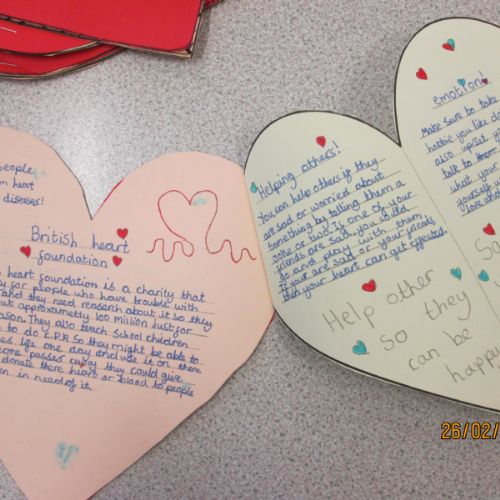 people
m heart
diseases!
British heart
foundation
heart foundation is a charity that
for people who have trouble with
and they need reaserch about it so they
out approxametly 100 million just for
ason. They also teach school children
to do C.P.R so they might be able to
es life one day and use it on them.
one passes away they could give
donate there heart or blood to people
en in need of it
Helping others!
You can help others if they
are sad or worried about
something by telling them a
joke or two. If one of your
friends are sad you could
go and play with them.
If your are sat or your friends
then your heart can get effected.
Help other
so they
can be
happy
emotion!
Make sure to take
hobbie you like do
also upset
talk to them
what your
yourself
love
So
26/02/